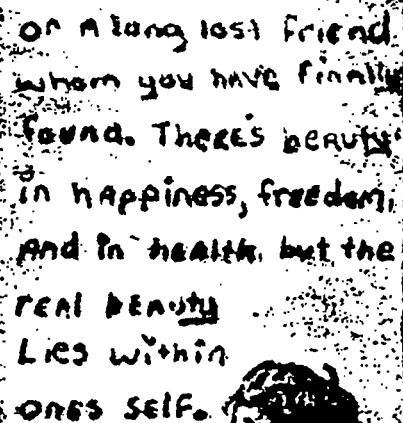 or A long lost friend
whom you have finally
found. There's beauty
in happiness, freedom,
And in health, but the
real beauty
Lies within
ones self.